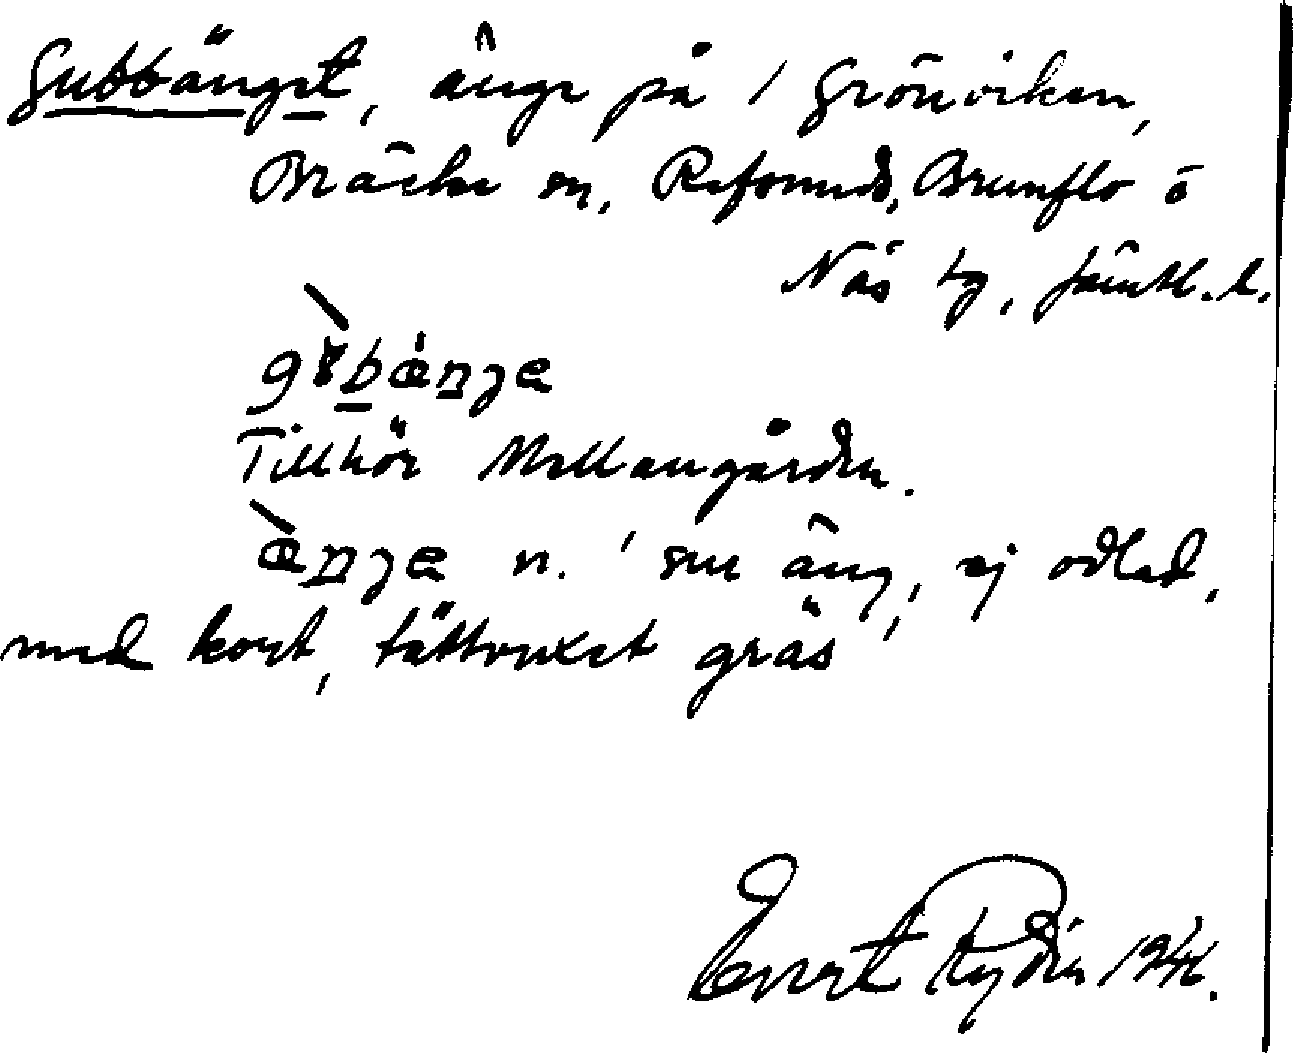 Gubbänget, änge på 1 Grönviken,
Bräcke sn, Refsunds, Brunflo o
Näs tg, Jämtl. l.
Tillhör Mellangården.
n. 'en äng, ej odlad,
med kort, tättvuxet gräs'
Evert Rydin 194